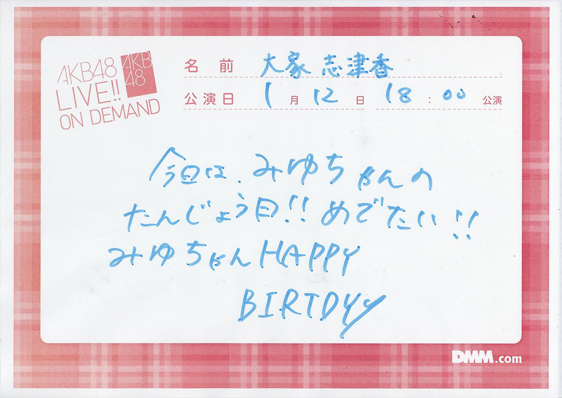 AKB48
LIVE!!
ON DEMAND
AKB
48
名前 大家 志津香
公演日 1月12日 18:00 公演
今日は、みゆちゃんの
たんじょう日!! めでたい!!
みゆちゃんHAPPY
BIRTDYy
DMM.com